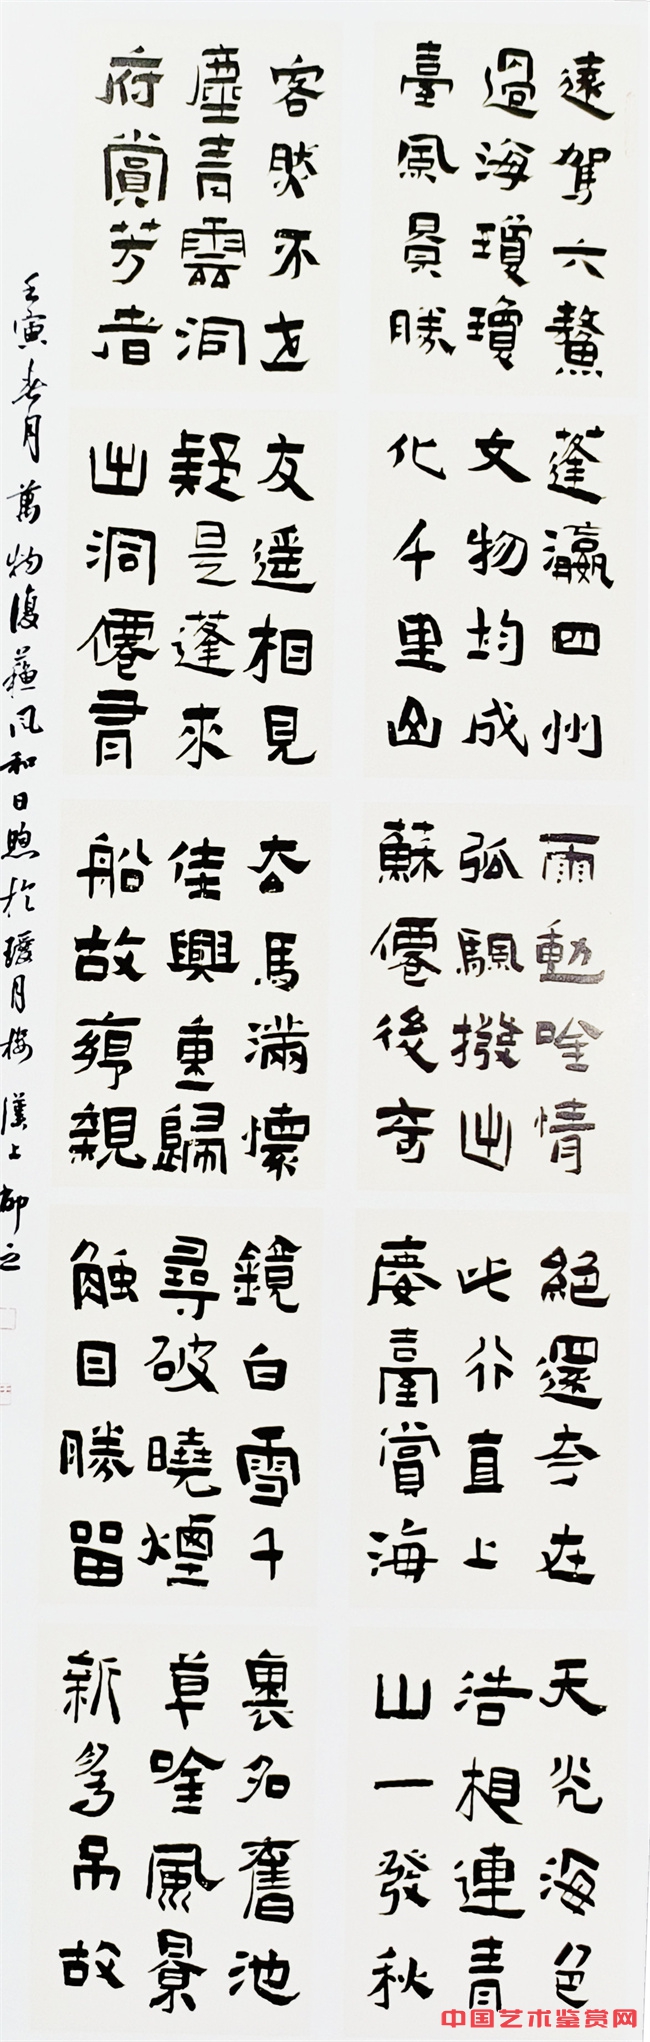 遠駕六鰲
過海瓊瓊
臺風景勝
蓬瀛四州
文物均成
化千里山
雨動吟情
孤颿撥出
蘇僊後奇
絕還奇在
此行直上
慶臺賞海
天光海色
浩相連青
山一發秋
客不
塵青雲洞
府賞芳者
友遥相見
疑是蓬來
出洞僊
馬滿懷
佳興重歸
船故鄉親
鏡白雪千
尋破曉煙
觸目勝留
裏名舊池
草吟風景
新吊故
壬寅春月萬物復蘇風和日煦於月樓漢上
中国艺术鉴赏网